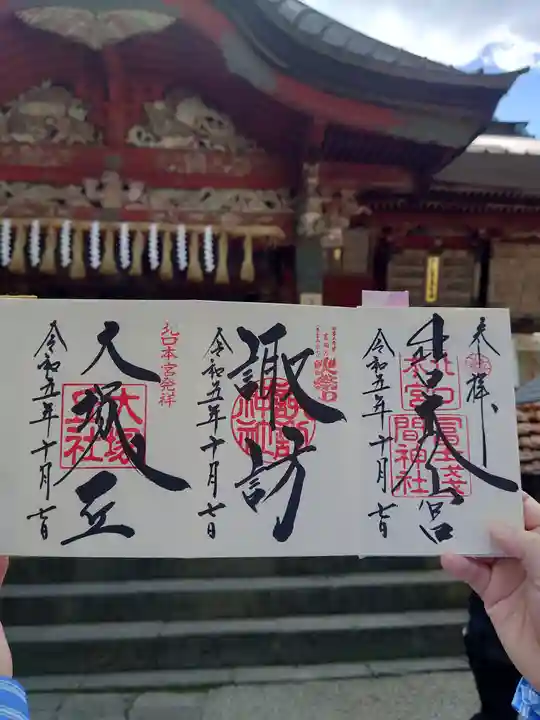 奉拝
北口本宮
北口本宮冨士浅間神社
令和五年十月七日
諏訪
諏訪神社
令和五年十月七日
北口本宮発祥
大塚丘
大塚丘社
令和五年十月七日